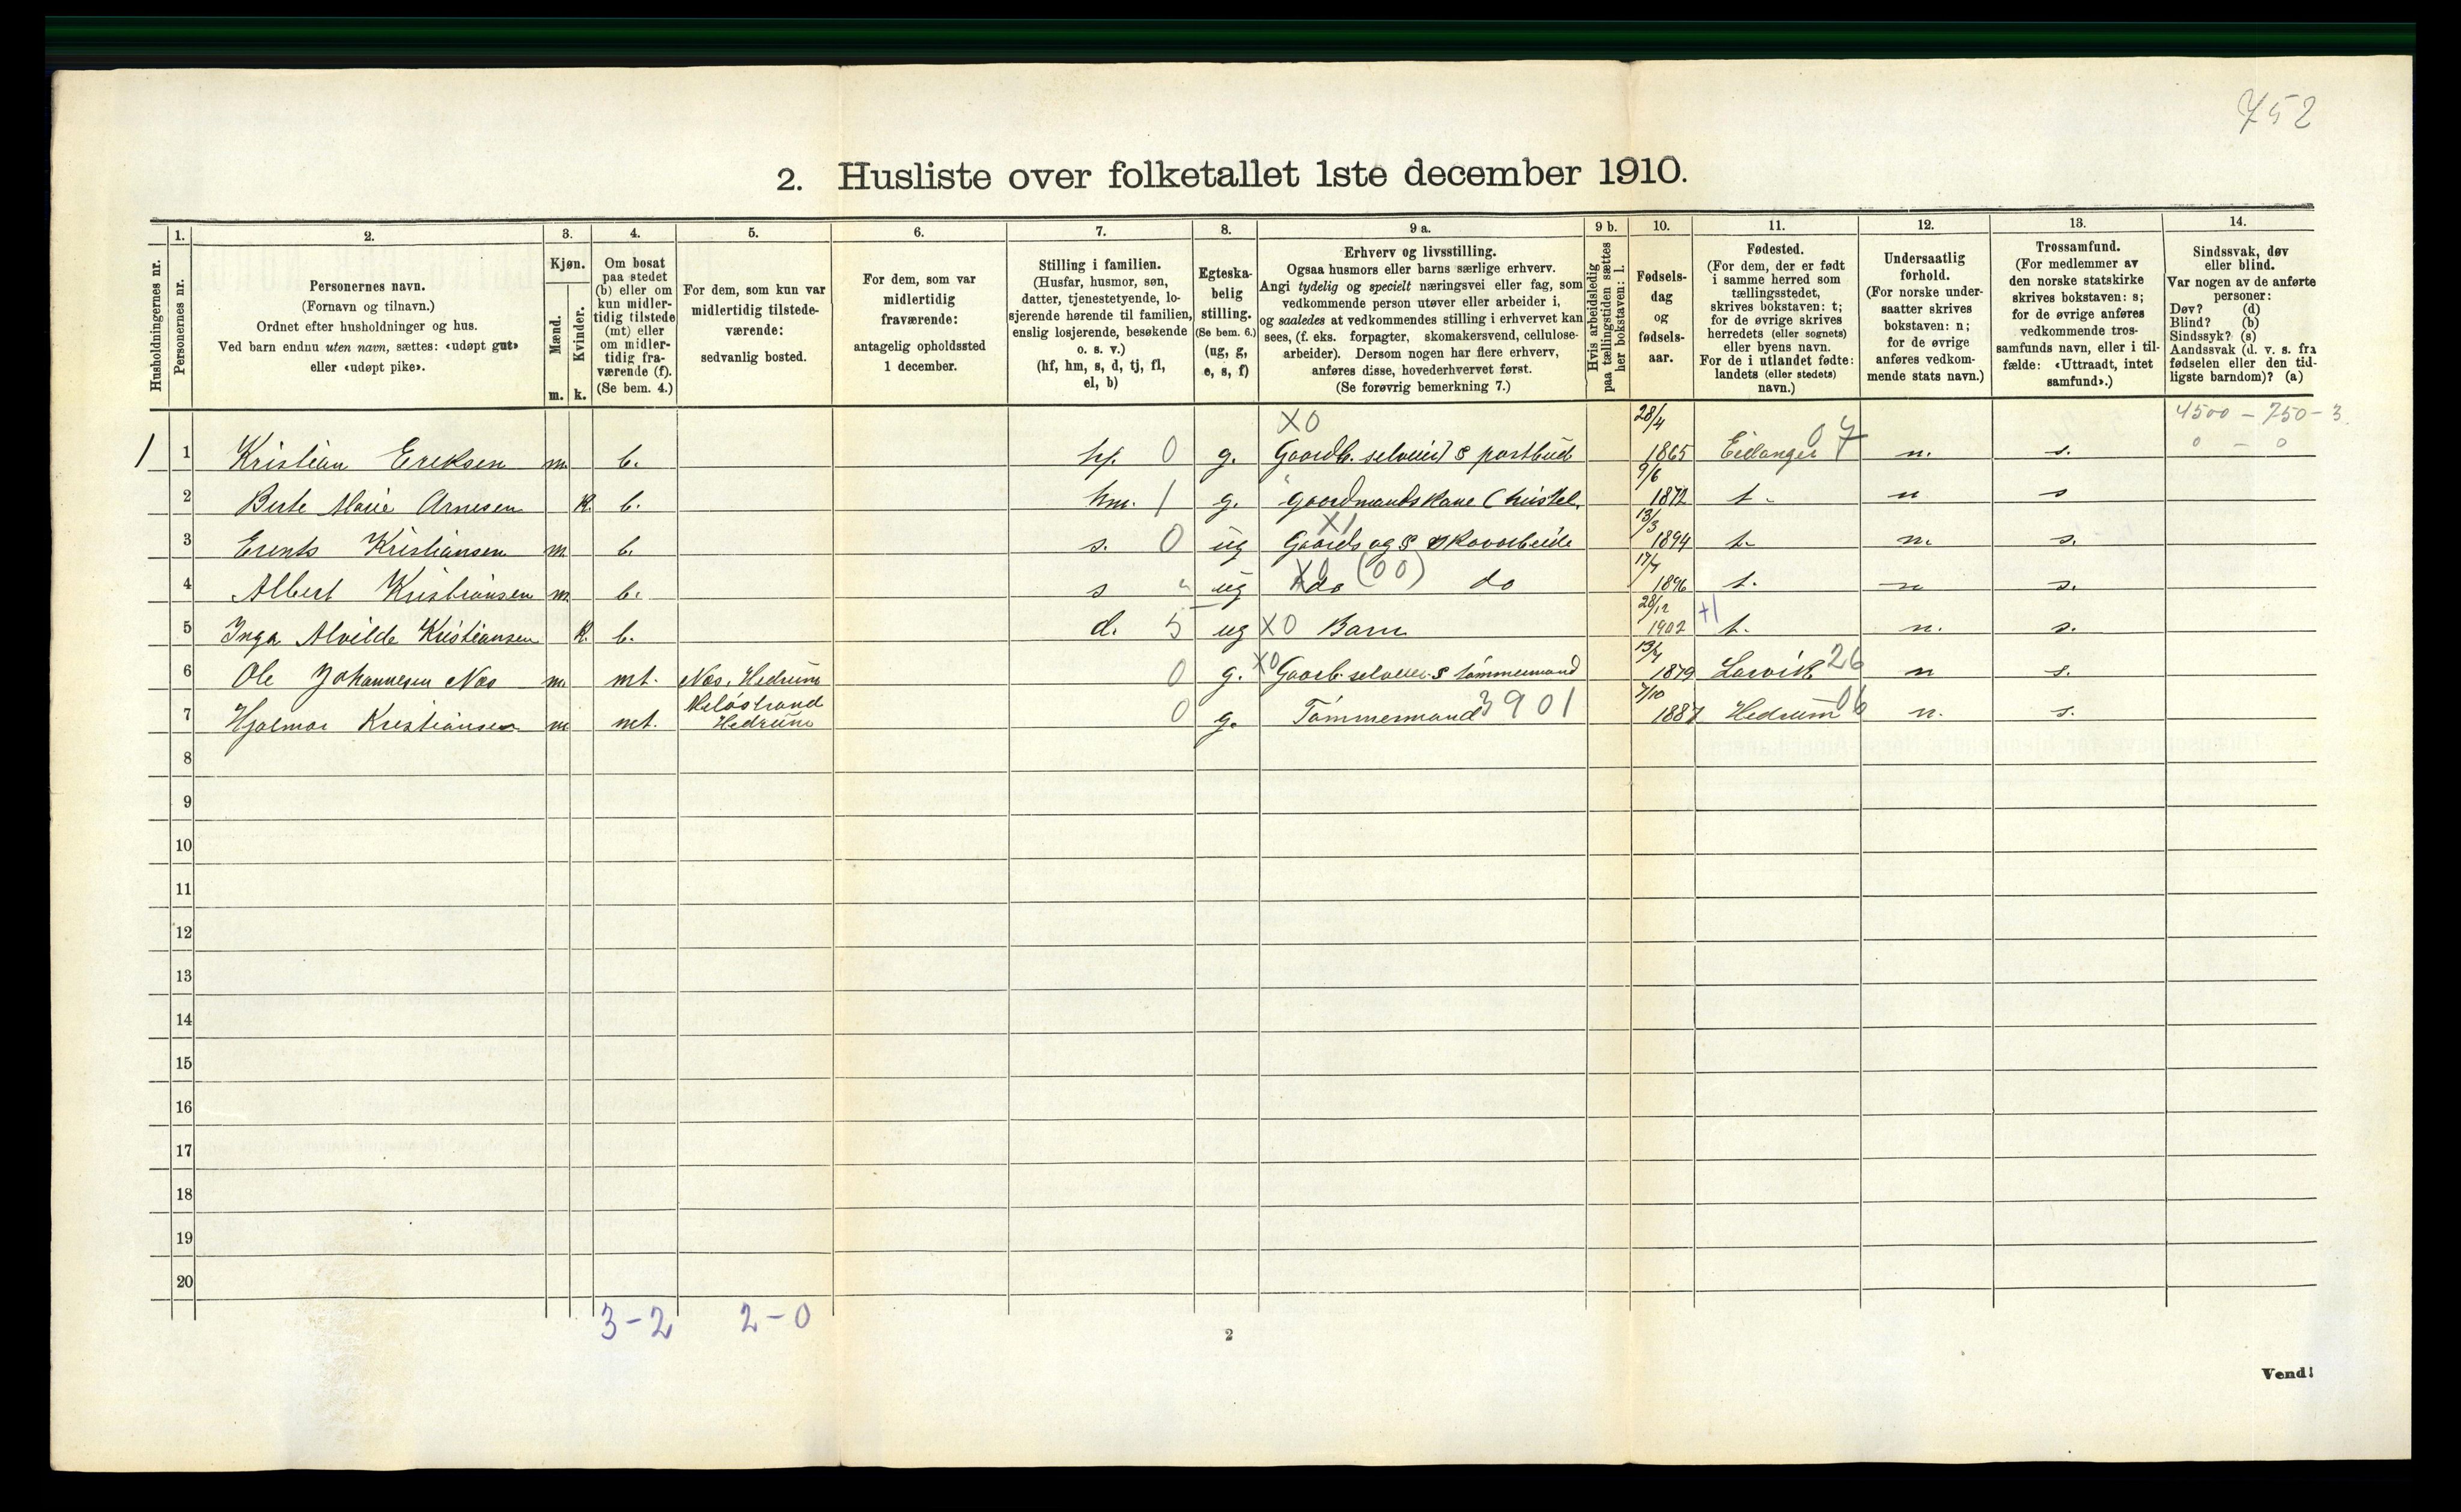 752
2. Husliste over folketallet 1ste december 1910.
Husholdningernes nr.
1.
Personernes nr.
2.
Personernes navn.
(Fornavn og tilnavn.)
Ordnet efter husholdninger og hus.
Ved barn endnu uten navn, sættes: «udøpt gut»
eller «udøpt pike».
3.
Kjøn.
Mænd.
Kvinder.
m. k.
4.
Om bosat
paa stedet
(b) eller om
kun midler-
tidig tilstede
(mt) eller
om midler-
tidig fra-
værende (f).
(Se bem. 4.)
5.
For dem, som kun var
midlertidig tilstede-
værende:
sedvanlig bosted.
6.
For dem, som var
midlertidig
fraværende:
antagelig opholdssted
1 december.
7.
Stilling i familien.
(Husfar, husmor, søn,
datter, tjenestetyende, lo-
sjerende hørende til familien,
enslig losjerende, besøkende
o. s. v.)
(hf, hm, s, d, tj, fl,
el, b)
8.
Egteska-
belig
stilling.
(Se bem. 6.)
(ug, g,
e, s, f)
9 a.
Erhverv og livsstilling.
Ogsaa husmors eller barns særlige erhverv.
Angi tydelig og specielt næringsvei eller fag, som
vedkommende person utøver eller arbeider i,
og saaledes at vedkommendes stilling i erhvervet kan
sees, (f. eks. forpagter, skomakersvend, cellulose-
arbeider). Dersom nogen har flere erhverv,
anføres disse, hovederhvervet først.
(Se forøvrig bemerkning 7.)
9 b.
Hvis arbeidsledig
paa tællingstiden sættes
her bokstaven: l.
10.
Fødsels-
dag
og
fødsels-
aar.
11.
Fødested.
(For dem, der er født
i samme herred som
tællingsstedet,
skrives bokstaven: t;
for de øvrige skrives
herredets (eller sognets)
eller byens navn.
For de i utlandet fødte:
landets (eller stedets)
navn.)
12.
Undersaatlig
forhold.
(For norske under-
saatter skrives
bokstaven: n;
for de øvrige
anføres vedkom-
mende stats navn.)
13.
Trossamfund.
(For medlemmer av
den norske statskirke
skrives bokstaven: s;
for de øvrige anføres
vedkommende tros-
samfunds navn, eller i til-
fælde: «Uttraadt, intet
samfund».)
14.
Sindssvak, døv
eller blind.
Var nogen av de anførte
personer:
Døv? (d)
Blind? (b)
Sindssyk? (s)
Aandssvak (d. v. s. fra
fødselen eller den tid-
ligste barndom)? (a)
X0 28/4 4500 - 750 - 3
1 1 Kristian Eriksen m. b. hf. 0 g. Gaardb. selveier S postbud 1865 Eidanger 07 n. s. 0 - 0
2 Berte Marie Arnesen k. b. hm. 1 g. Gaardmandskone (huistel. 9/6 1872 t. n s
3 Erents Kristiansen m b. s. 0 ug X1 Gaards og S skovarbeide 13/3 1894 t. n. s.
4 Albert Kristiansen m. b. s " ug X0 do (00) do 17/4 1896 t. n s.
5 Inga Alvilde Kristiansen k. b. d. 5 ug X0 Barn 28/12 1902 +1 t. n. s.
6 Ole Johannesen Næs m. mt. Næs, Hedrum 0 g. X0 Gaarb. selveier S tømmermand 13/4 1879 Larvik 26 n s.
7 Hjalmar Kristiansen m mt. Meløstrand
Hedrum 0 g. Tømmermand 3901 7/10 1887 Hedrum 06 n. s.
8
9
10
11
12
13
14
15
16
17
18
19
20
3-2 2-0
2
Vend!